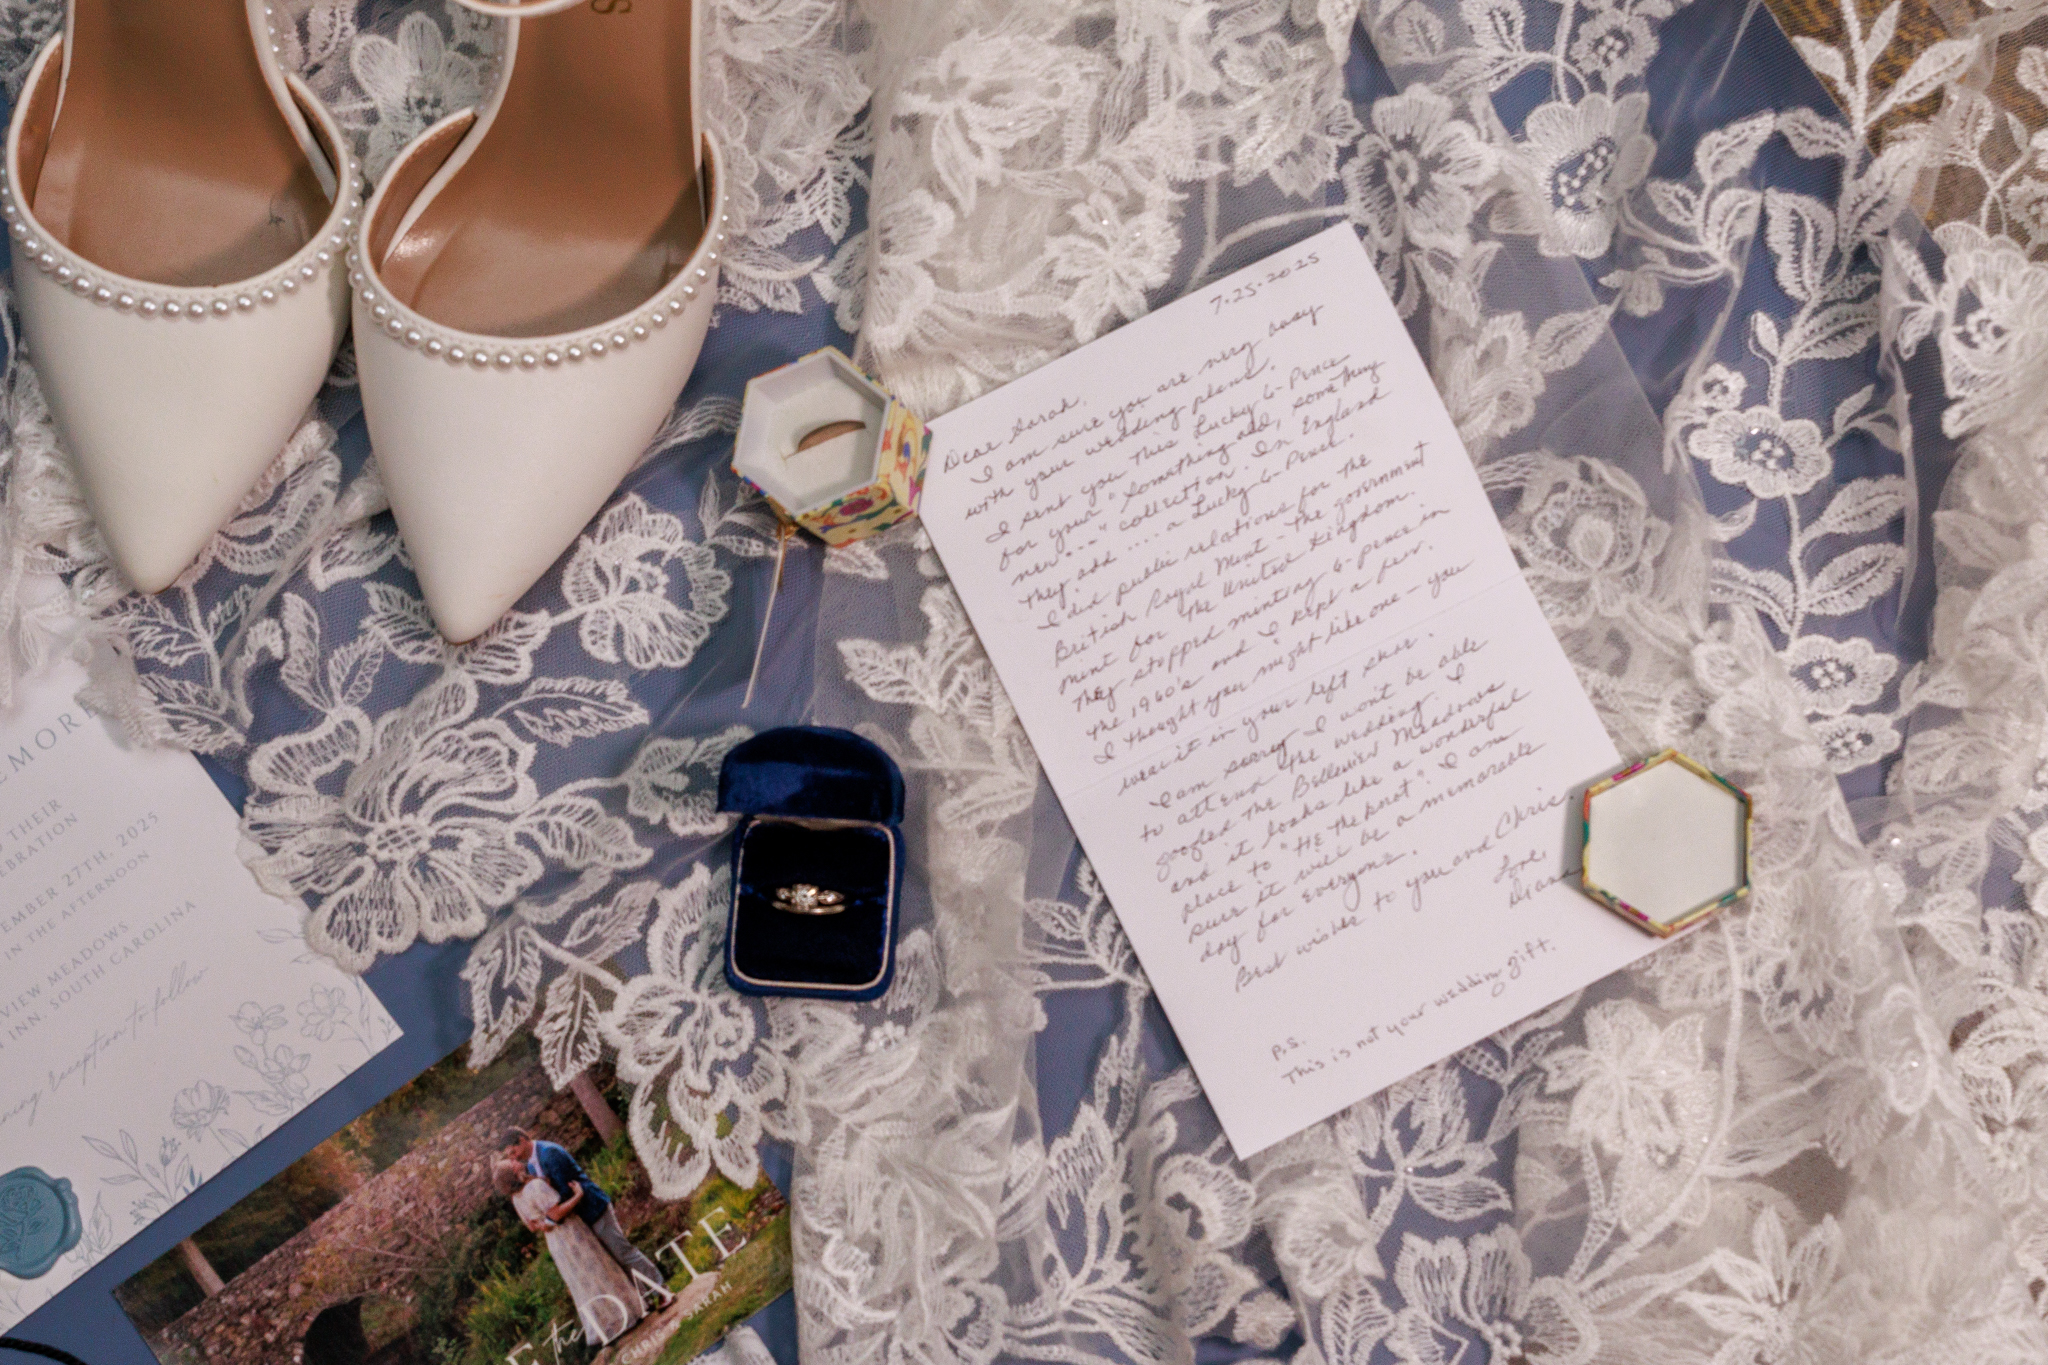 S
7.25.2025
Dear Sarah,
I am sure you are very busy
with your wedding plans.
I sent you this Lucky 6-Pence
for your "something old, something
new---" collection. In England
they add .... a Lucky 6-Pence.
I did public relations for the
British Royal Mint - the government
mint for the United Kingdom.
They stopped minting 6-pence in
the 1960's and I kept a few.
I thought you might like one - you
wear it in your left shoe.
I am sorry I won't be able
to attend the wedding. I
googled the Belleview Meadows
and it looks like a wonderful
place to "tie the knot". I am
sure it will be a memorable
day for everyone.
Best wishes to you and Chris
Love,
Diana
P.S.
This is not your wedding gift.
MORE
THEIR
EBRATION
EMBER 27TH, 2025
IN THE AFTERNOON
VIEW MEADOWS
INN, SOUTH CAROLINA
reception to follow
E the DATE
CHRIS SARAH